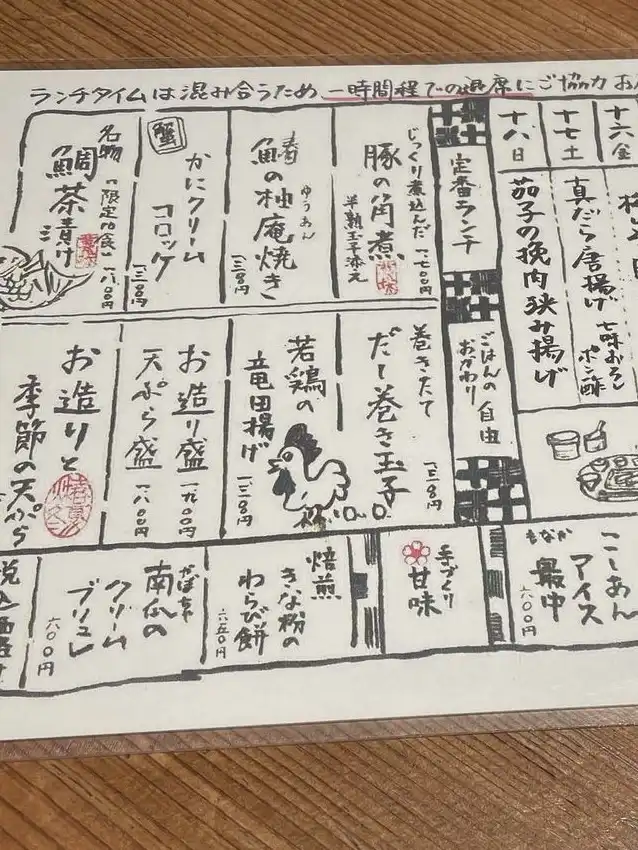 ランチタイムは混み合うため、一時間程での退席にご協力お
十六金
十七土
真だら唐揚げ
七味おろし
ポン酢
十八日
茄子の挽肉挟み揚げ
定番ランチ
ごはんの
おかわり
自由
じっくり煮込んだ
豚の角煮
半熟玉子添え
一、七〇〇円
鰆の柚庵焼き
ゆうあん
蟹
かにクリーム
コロッケ
名物
鯛茶漬け
一、八〇〇円
巻きたて
だし巻き玉子
若鶏の
竜田揚げ
お造り盛
天ぷら盛
一、八〇〇円
お造りと
季節の天ぷら
こしあん
アイス
最中
もなか
六〇〇円
手づくり
甘味
焙煎
きな粉の
わらび餅
六五〇円
かぼちゃ
南瓜の
クリーム
ブリュレ
六〇〇円